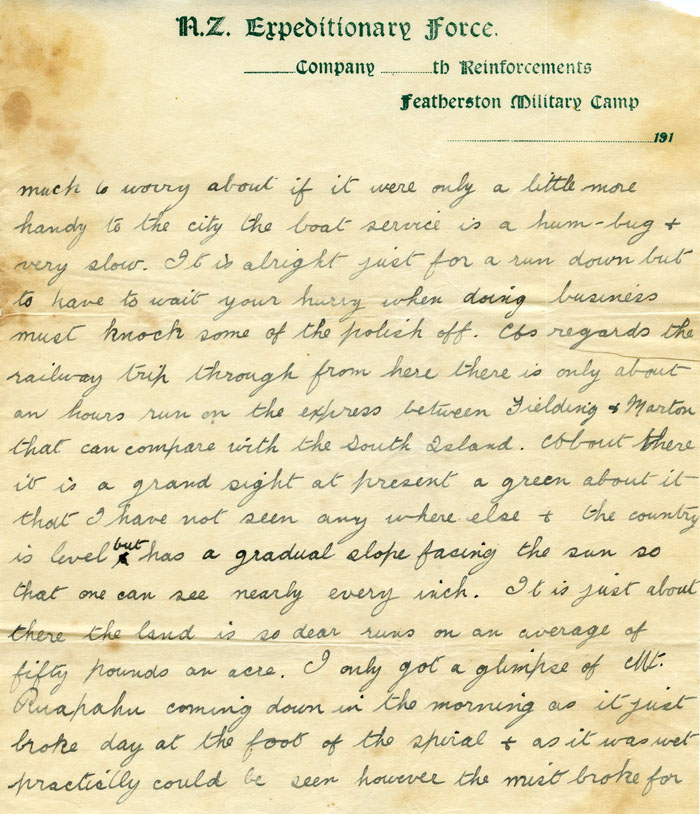 N.Z. Expeditionary Force.
Company th Reinforcements
Featherston Military Camp
191
much to worry about if it were only a little more
handy to the city the boat service is a hum-bug +
very slow. It is alright just for a run down but
to have to wait your hurry when doing business
must knock some of the polish off. As regards the
railway trip through from here there is only about
an hours run on the express between Fielding & Marton
that can compare with the South Island. About there
it is a grand sight at present a green about it
that I have not seen any where else + the country
is level but has a gradual slope facing the sun so
that one can see nearly every inch. It is just about
there the land is so dear runs on an average of
fifty pounds an acre. I only got a glimpse of Mt.
Ruapahu coming down in the morning as it just
broke day at the foot of the spiral + as it was wet
practically could be seen however the mist broke for